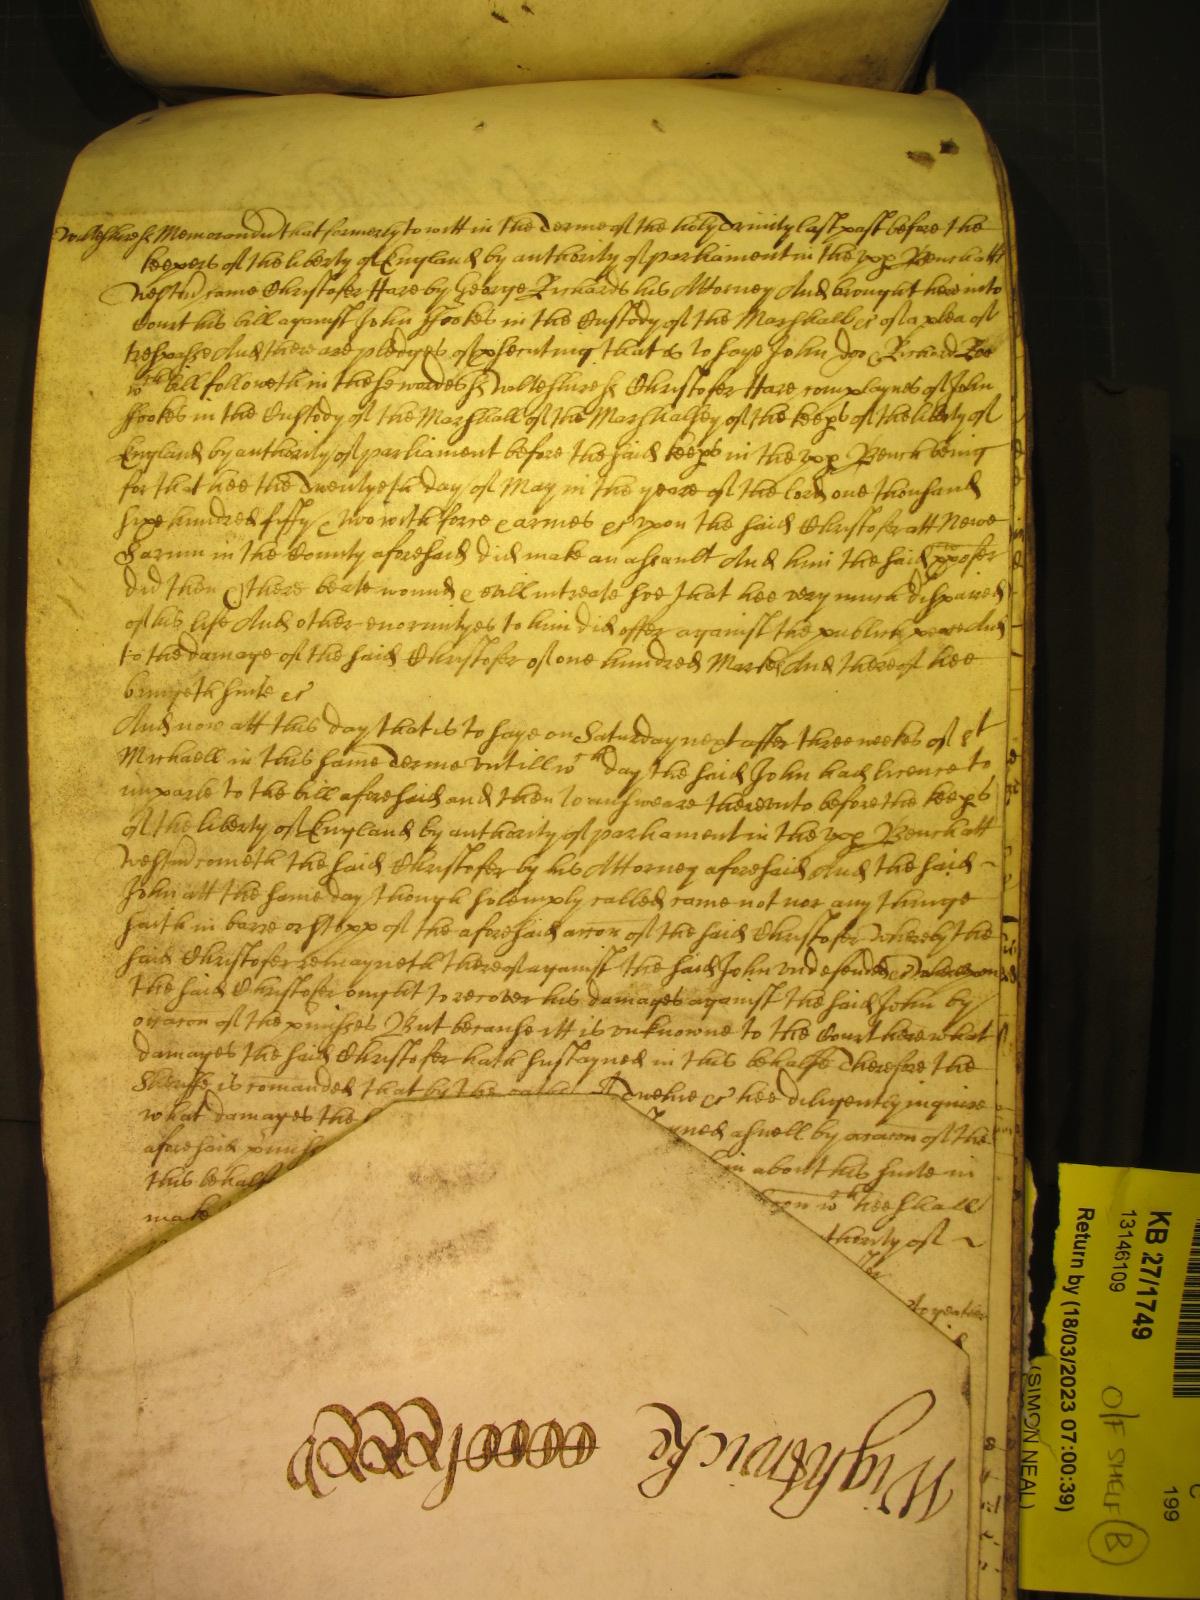 Willesshire ss Memorandu that formerly to witt in the Terme of the holy Trinity last past before the
keepers of the liberty of England by authority of parliament in the vpp Bench att
Westm came Christofer Hare by George Richards his Attorney And brought here into
Court his bill against John Hookes in the Custody of the Marshall &c of a plea of
trespasse And there are pledges of psecuting that is to saye John Doo & Richard Roe
wch bill followeth in these wordes ss Willesshire ss Christofer Hare complaynes of John
Hookes in the Custody of the Marshall of the Marshalsey of the keeps of the liberty of
England by authority of parliament before the said keeps in the vpp Bench being
for that hee the Twentyeth day of May in the yeare of the lord one thousand
sixe hundred fifty & two with force & armes &c vpon the said Christofer att Newe
Sarum in the County aforesaid did make an assault And him the said xpofer
did then & there beate wound & evill intreate soe that hee very much dispaired
of his life And other enormityes to him did offer against the publick peace And
to the damage of the said Christofer of one hundred Markes And thereof hee
bringeth suite &c
And now att this day that is to saye on Saturday next after three weekes of St
Michaell in this same Terme vntill wch day the said John had licence to
imparle to the bill aforesaid and then to answeare therevnto before the keeps
of the liberty of England by authority of parliament in the vpp Bench att
Westm cometh the said Christofer by his Attorney aforesaid And the said
John att the same day though solemply called came not nor any thinge
saith in barre or stopp of the aforesaid accon of the said Christofer whereby the
said Christofer remayneth thereof against the said John vndefended &c
the said Christofer ought to recover his damages against the said John by
occacon of the pmisses But because itt is vnknowne to the Court here what
damages the said Christofer hath sustayned in this behalfe Therefore the
Sheriffe is comanded that by the oathes of Twelve &c hee diligently inquire
what damages the
yned aswell by occacon of the
aforesaid pmiss
in about his suite in
this behalf
wch hee shall
make
thority of
Wightwicke
KB 27/1749
13146109
Return by (18/03/2023 07:00:39)
(SIMON NEAL)
O/F SHELF B
C
199